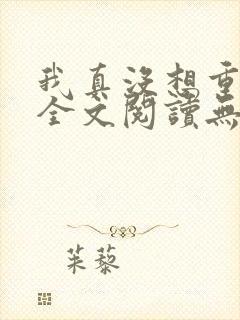 我真没想重
全文閱讀無
茱藜